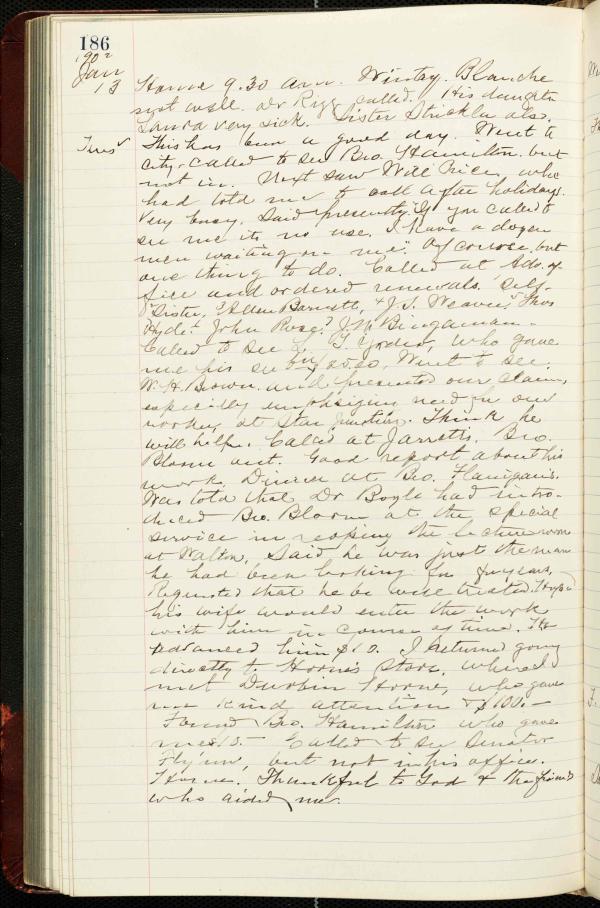 186
1902
Jan
13 Home 9.30 A.M. Wintry. Blanche
not well. Dr Rigg called. His daughter
Laura very sick. Sister Strickler also.
This has been a good day. Went to
city. Called to see Bro. Hamilton, but
not in. Next saw Will Price, who
had told me to call after holidays.
Very busy. Said presently, "If you called to
see me its no use. I have a dozen
men waiting on me". Of course but
one thing to do. Called at Ado. of
fice and ordered renewals. Self-
Sister, Allen Barnett, & J.S. Weaver, Thos
Hyde John Rose J.M. Bingaman.
Called to see Yoder, who gave
me his sub'n 20.00. Went to see
W. H. Brown and presented our claim,
especially emphasizing need in our
work at Star Junction. Think he
will help. Called at Jarrett's. Bro.
Bloom out. Good report about his
work. Dinner at Bro. Flanigan's.
Was told that Dr Boyle had intro-
duced Bro. Bloom at the special
service in reopening the lecture room
at Walton. Said he was just the man
he had been looking for for years.
Requested that he be well treated. Hoped
his wife would enter the work
with him in course of time. He
advanced him $10. I returned going
directly to Horne's Store, where I
met Durbin Horne, who gave
me kind attention & $100.-
Found Bro. Hamilton who gave
me 15.- Called to see Senator
Flynn, but not in his office.
Home. Thankful to God & the friends
who aided me.